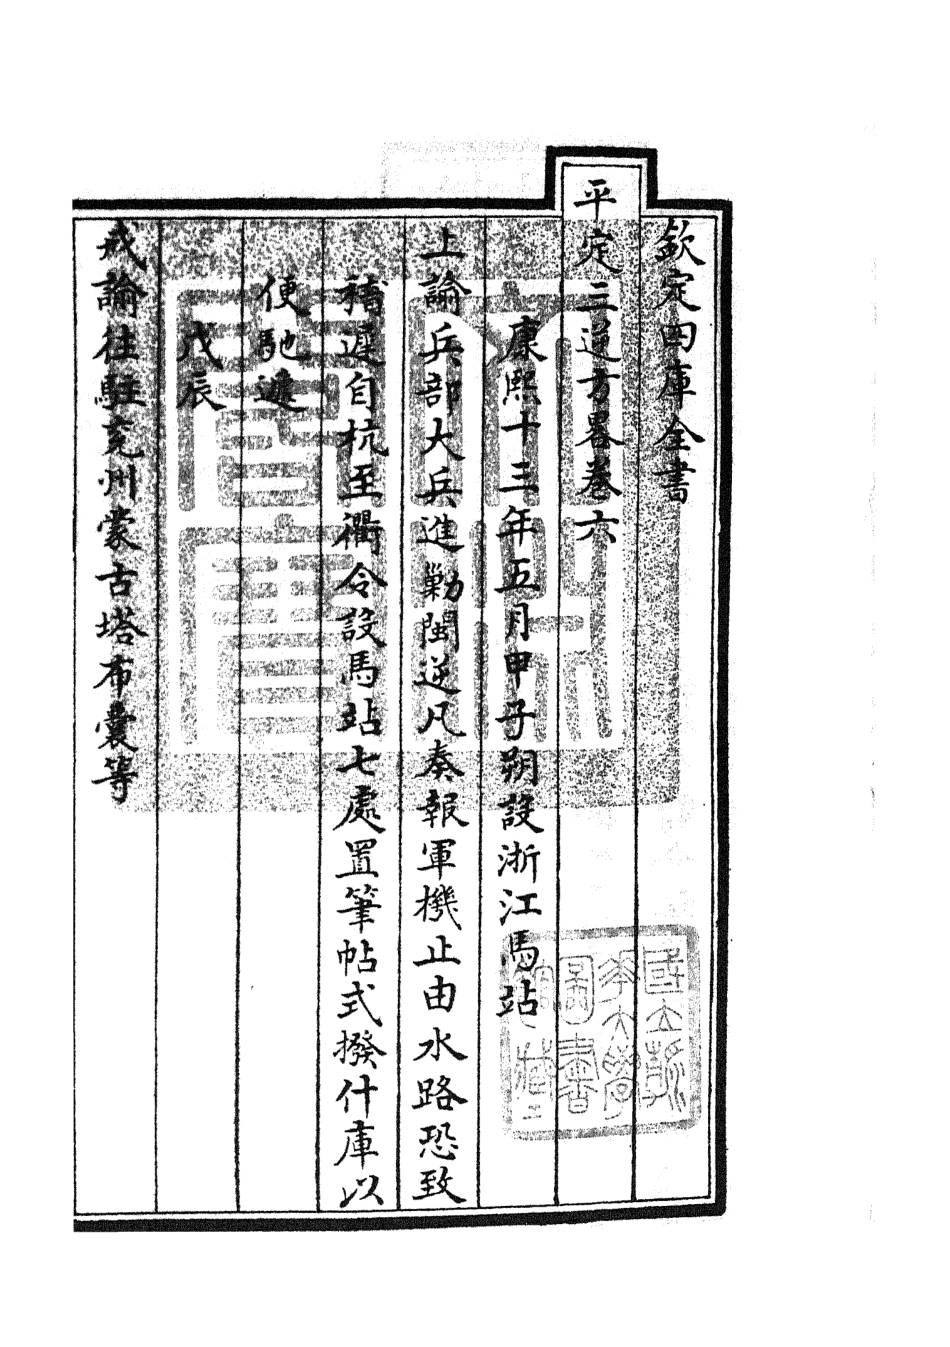 欽定四庫全書
平定三逆方畧卷六
康熙十三年五月甲子朔設浙江馬站
上諭兵部大兵進勦閩逆凡奏報軍機止由水路恐致
稽遲自杭至衢令設馬站七處置筆帖式撥什庫以
便馳遞
戊辰
戒諭往駐兖州蒙古塔布囊等
國立浙
江大學
圖書
館藏